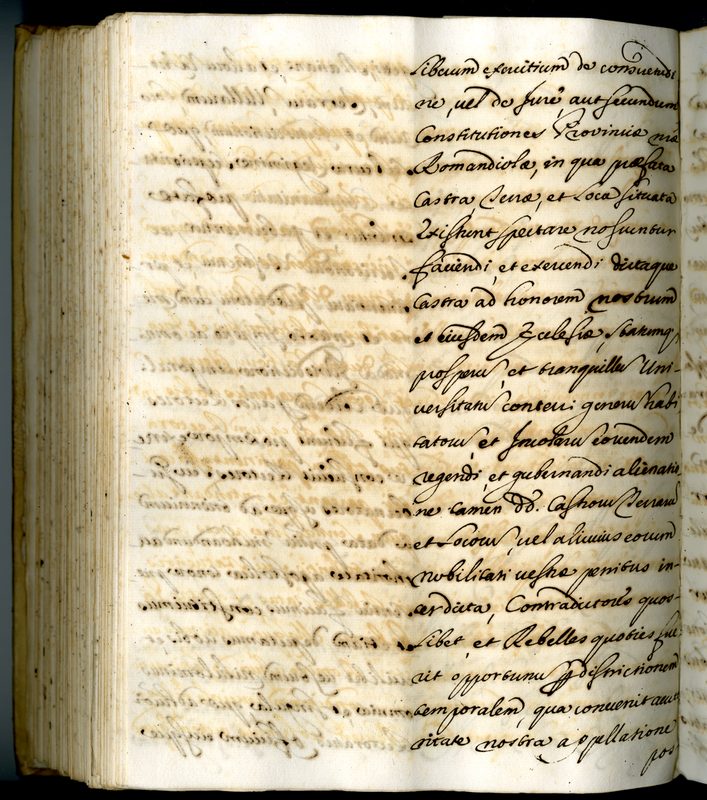 liberum exercitium de consuetudi
ne, vel de Jure, aut secundum
Constitutiones Provinciæ nræ
Romandiolæ, in qua præfata
Castra Terræ, et Loca situata
Existunt spectare noscuntur
faciendi, et exercendi dictaque
Castra ad honorem nostrum
et eiusdem Ecclesiæ, statumq,
prosperũ, et tranquillũ Uni-
versitatũ conteri generũ habi
tatorũ, et Incolarũ eorundem
regendi, et gubernandi alienatio
ne tamen dd. Castrorũ Terrarũ
et Locorũ, vel alicuius eorum
nobilitati vestræ penitus in-
terdicta, Contradictores quos-
libet, et Rebelles quoties fue
rit opportunũ districtionem
temporalem, qua convenit aucto
ritate nostra appellatione
pos-